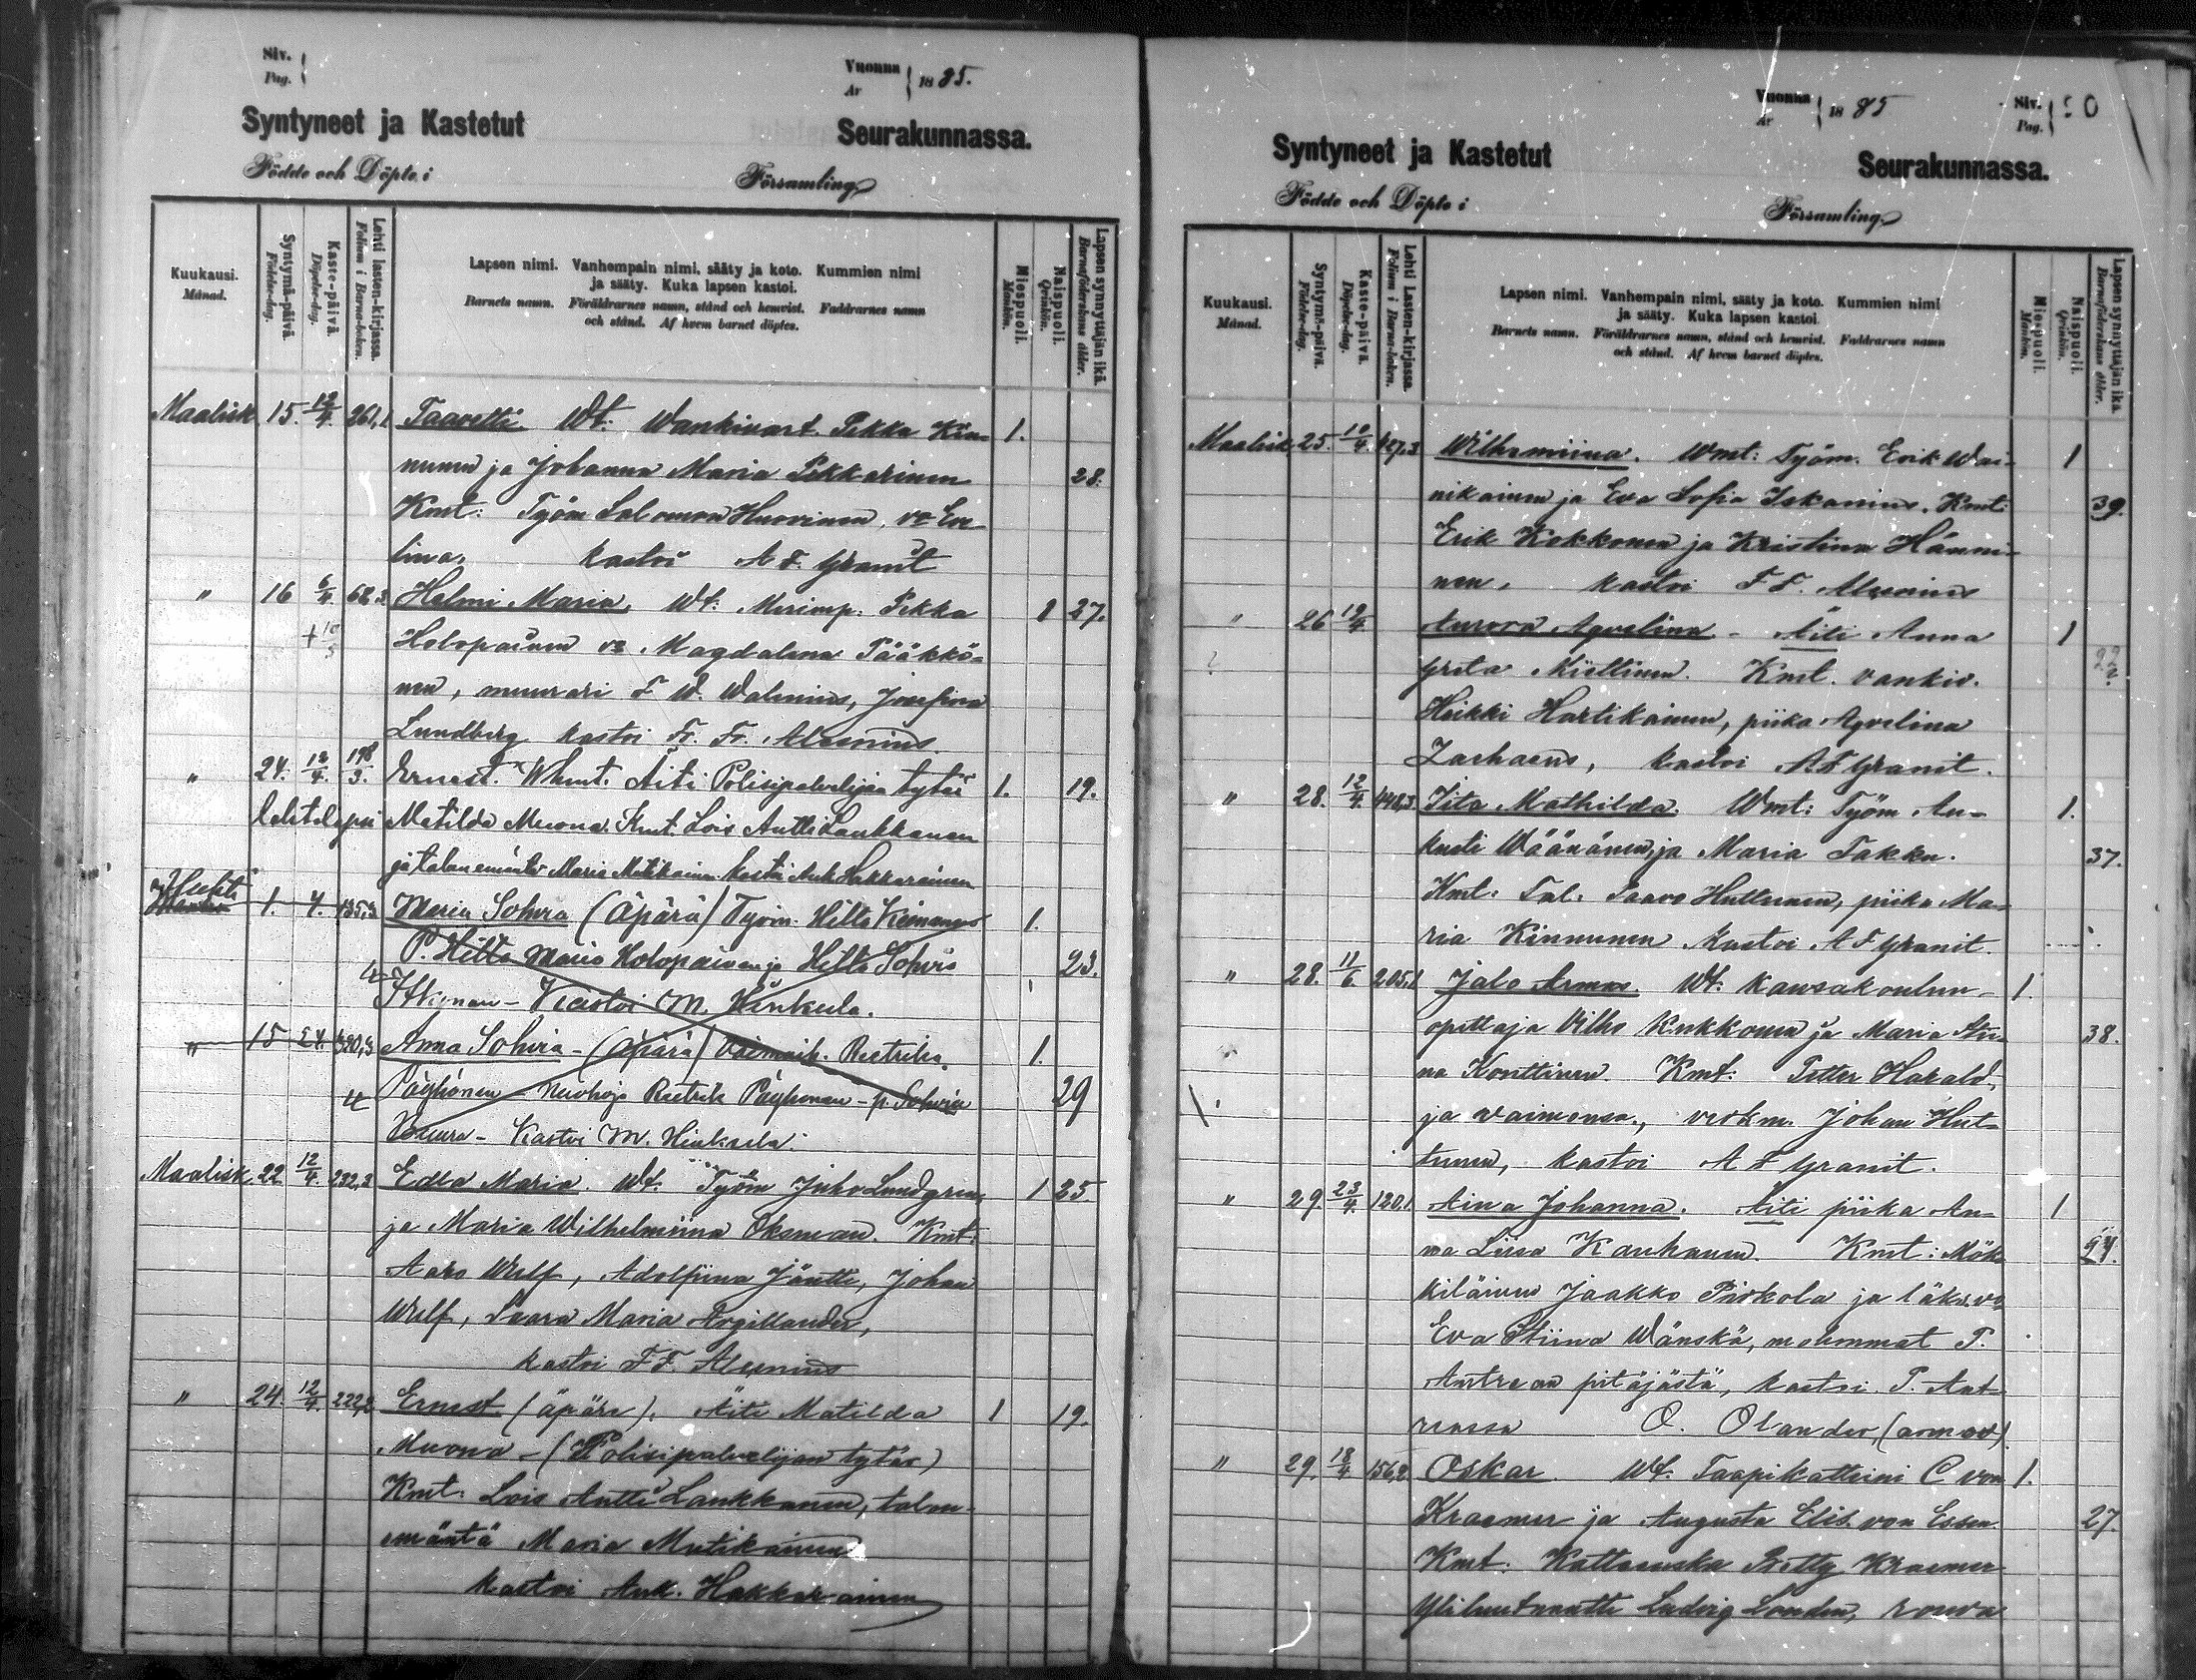 Siv.
Pag.
Vuonna
År 1885.
Syntyneet ja Kastetut Seurakunnassa.
Födde och Döpte i Församling
Kuukausi.
Månad.
Syntymä-päivä.
Födelse-dag.
Kaste-päivä.
Döpelse-dag.
Lehti lasten-kirjassa.
Folium i Barna-boken.
Lapsen nimi. Vanhempain nimi, sääty ja koto. Kummien nimi
ja sääty. Kuka lapsen kastoi.
Barnets namn. Föräldrarnes namn, stånd och hemvist. Faddrarnes namn
och stånd. Af hvem barnet döptes.
Miespuoli.
Mankön.
Naispuoli.
Qvinkön.
Lapsen synnyttäjän ikä.
Barnaföderskans ålder.
Maalisk 15. 12/4. 261,1 Taavetti. Wt: Wankivart. Pekka Kin- 1.
nunen ja Johanna Maria Pekkarinen 28.
Kmt: Työm Salomon Huovinen, vo Eve-
lina, kastoi A F Granit
" 16 6/4 68,3 Helmi Maria, Wt: Merimp. Pekka 1 27.
Holopainen vo Magdalena Pääkkö-
nen, muurari F W. Walenius, Josefina
Lundberg kastoi Fr. Fr. Alcenius.
" 24. 12/4. 198/3. Ernest. Äiti Polisipalvelijan tytär 1. 19.
Matilda Muona. Kmt. Lois Antti Laukkanen
ja talon emäntä Maria Mutikainen. kastoi Auk Hakkarainen
Huhti 1. 4. 135,3 Maria Sohvia (Äpärä) Työm. 1.
P. Hilta Maria Holopainen ja Hilta Sohvia 23.
Kastoi M. Hinkula.
" 15 24. 320,3 Anna Sohvia - (Äpärä) 1.
29
Kastoi M. Hinkula.
Maalisk. 22. 12/4. 232,2 Edla Maria. Wt. Työm Juho Lundgren 1 25
ja Maria Wilhelmiina Oksman. Kmt:
Aaro Wulf, Adolfiina Jäntti, Johan
Wulf, Saara Maria Argillander,
kastoi F F. Alcenius
" 24. 12/4. 222,2 Ernest (äpärä). Äiti Matilda 1 19.
Muona - (Polisipalvelijan tytär)
Kmt: Lois Antti Laukkanen, talon-
emäntä Maria Mutikainen
kastoi Auk. Hakkarainen
Vuonna
År 1885
Siv.
Pag. 50
Syntyneet ja Kastetut Seurakunnassa.
Födde och Döpte i Församling.
Kuukausi.
Månad.
Syntymä-päivä.
Födelse-dag.
Kaste-päivä.
Döpelse-dag.
Lehti Lasten-kirjassa.
Folium i Barna-boken.
Lapsen nimi. Vanhempain nimi, sääty ja koto. Kummien nimi
ja sääty. Kuka lapsen kastoi.
Barnets namn. Föräldrarnes namn, stånd och hemvist. Faddrarnes namn
och stånd. Af hvem barnet döptes.
Miespuoli.
Mankön.
Naispuoli.
Qvinkön.
Lapsen synnyttäjän ikä.
Barnaföderskans ålder.
Maalisk 25. 10/4. Wilhemiina. Wmt: Työm. Erik Wai- 1
nikainen ja Eva Sofia Iskanius. Kmt: 39.
Erik Kokkonen ja Kristina Hänni-
nen, kastoi F F. Alcenius
" 26 19/4. Aurora Aqvelina - Äiti Anna 1
Greta Miettinen. Kmt. vankiv. 22.
Heikki Hartikainen, piika Aqvelina
Zachaeus, kastoi A F Granit.
" 28. 12/4. 448,3. Iita Mathilda. Wmt: Työm Au- 1.
kusti Wäänänen, ja Maria Takku. 37.
Kmt: Tal. Paavo Huttunen, piika Ma-
ria Kinnunen kastoi A F Granit.
" 28. 11/6. 205,1 Jalo Armas. Wt: Kansakoulun- 1.
opettaja Vilho Kukkonen ja Maria Stii- 38.
na Konttinen. Kmt: Petter Harald,
ja vaimonsa, verokm. Johan Hut-
tunen, kastoi A F Granit.
" 29. 23/4. 120,1. Aina Johanna. Äiti piika An- 1
na Liisa Kauhanen. Kmt: Mök-
kiläinen Jaakko Pirkola ja
Eva Stiina Wänskä, molemmat P.
Antrean pitäjästä, kastoi P. Ant-
reassa O. Olander,
" 29. 18/4 156,2. Oskar. Wt. Taapikatteini C von 1.
Kraemer ja Augusta Elis. von Essen. 27.
Kmt: Betty Kraemer
Yliluutnantti Ludvig Londen, rouva